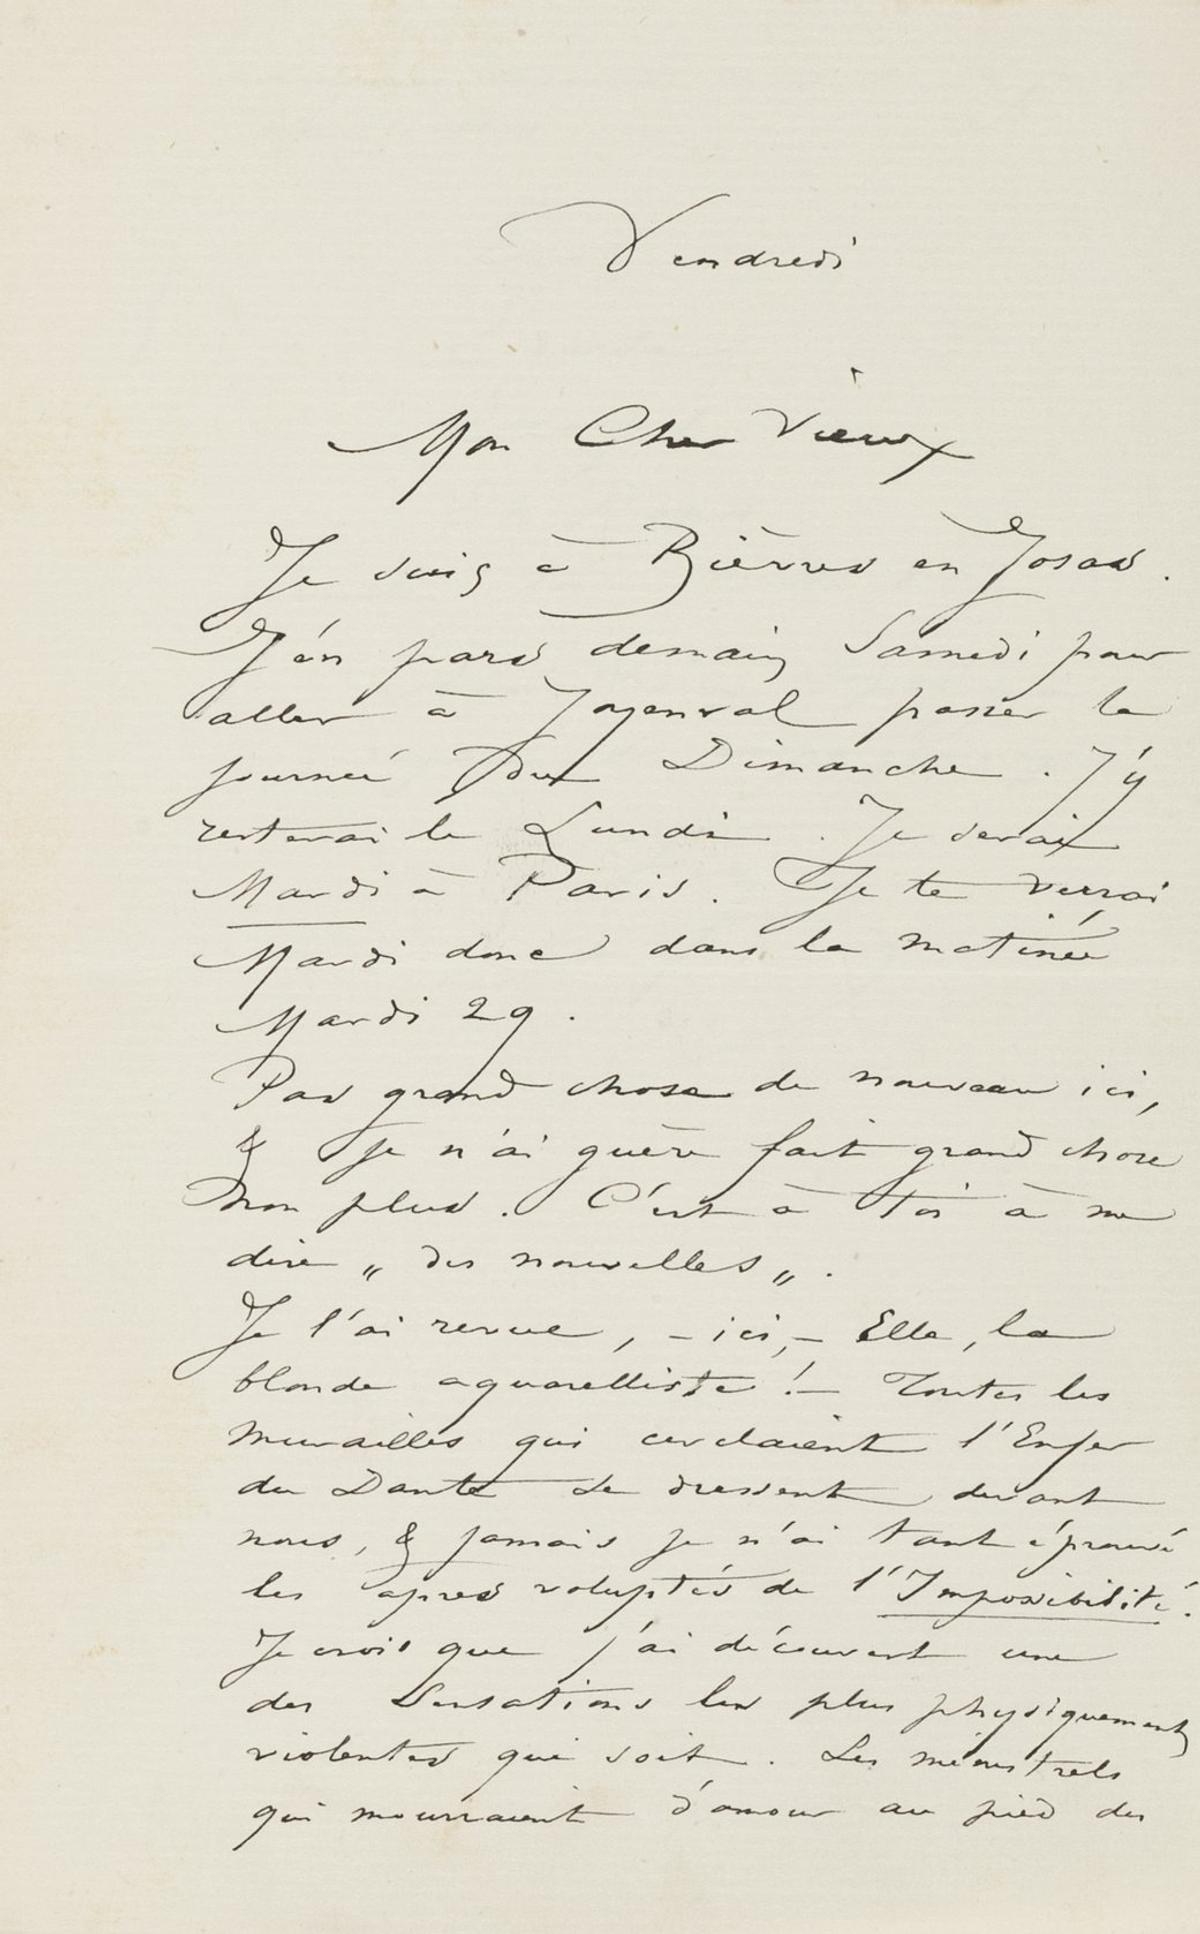 Vendredi
Mon Cher Vieux
Je suis à Bièvres en Josas.
J'en pars demain Samedi pour
aller à Joyenval passer la
journée du Dimanche. J'y
resterai le Lundi. Je serai
Mardi à Paris. Je te verrai
Mardi donc dans la matinée
Mardi 29.
Pas grand chose de nouveau ici,
& je n'ai guère fait grand chose
non plus. C'est à toi à me
dire „ des nouvelles „.
Je l'ai revue, – ici, – Elle, la
blonde aquarelliste ! – Toutes les
murailles qui cerclaient l'Enfer
du Dante se dressent devant
nous, & jamais je n'ai tant éprouvé
les apres voluptés de l'Impossibilité.
Je crois que j'ai découvert une
des sensations les plus physiquement
violentes qui soit. Les ménestrels
qui mouraient d'amour au pied des